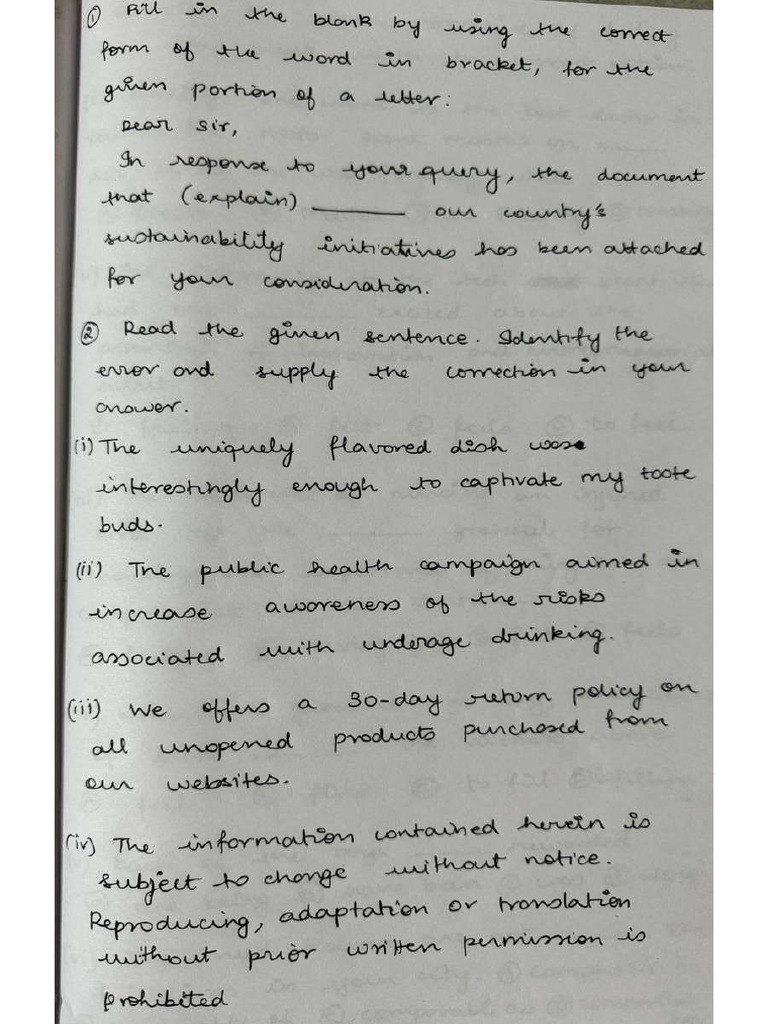 ① Fill in the blank by using the correct
form of the word in bracket, for the
given portion of a letter:
Dear Sir,
In response to your query, the document
that (explain) ______ our country's
sustainability initiatives has been attached
for your consideration.
② Read the given sentence. Identify the
error and supply the correction in your
answer.
(i) The uniquely flavored dish was
interestingly enough to captivate my taste
buds.
(ii) The public health campaign aimed in
increase awareness of the risks
associated with underage drinking.
(iii) We offers a 30-day return policy on
all unopened products purchased from
our websites.
(iv) The information contained herein is
subject to change without notice.
Reproducing, adaptation or translation
without prior written permission is
prohibited